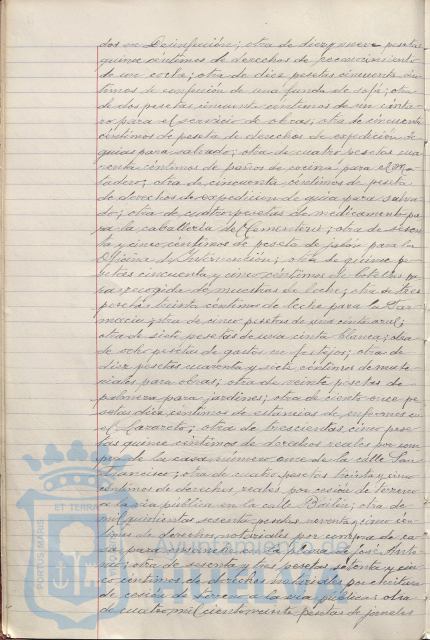 dos en Desinfección; otra de diez y nueve pesetas
quince céntimos de derechos de reconocimiento
de un corta; otra de diez pesetas cincuenta cén-
timos de confección de una funda de sofá; otra
de dos pesetas cincuenta céntimos de un cinta-
ro para el servicio de obras; otra de cincuenta
céntimos de peseta de derechos de expedición de
guías para salvado; otra de cuatro pesetas cua-
renta céntimos de paños de cocina para el Ma-
tadero; otra de cincuenta céntimos de peseta
de derechos de expedición de guía para salva-
do; otra de cuatro pesetas de medicamento pa-
ra la caballería del Cementerio; otra de sesen-
ta y cinco céntimos de peseta de jabón para la
Oficina de Intervención; otra de quince pe-
setas cincuenta y cinco céntimos de botellas pa-
ra recogida de muestras de leche; otra de tres
pesetas treinta céntimos de leche para la Far-
macia; otra de cinco pesetas de una cinta azul;
otra de siete pesetas de una cinta blanca; otra
de ocho pesetas de gastos en festejos; otra de
diez pesetas cuarenta y siete céntimos de mate-
riales para obras; otra de veinte pesetas de
para jardines; otra de ciento once pe-
setas diez céntimos de estancias de enfermos en
el Lazareto; otra de trescientas cinco pese-
tas quince céntimos de derechos reales por com-
pra de la casa número once de la calle San
Francisco; otra de cuatro pesetas treinta y cinco
céntimos de derechos reales por cesión de terreno
a la vía pública en la calle; otra de
mil quinientas sesenta pesetas noventa y cinco cén-
timos de derechos notariales por compra de ca-
sa para en la plaza de José Anto-
nio; otra de sesenta y tres pesetas setenta y cin-
co céntimos de derechos notariales por escritura
de cesión de terreno a la vía pública; otra
de cuatro mil ciento veinte pesetas de jornales
PORTUS MARIS
ET TERRA